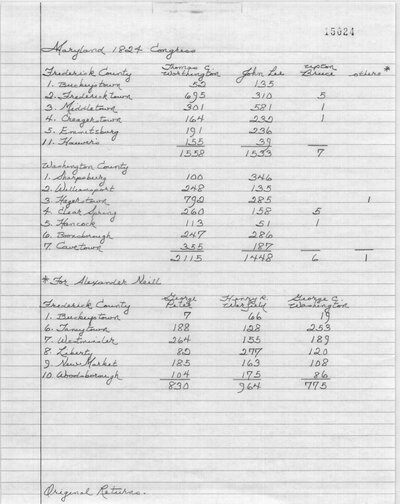 15024
Maryland 1824 Congress
Frederick County Thomas C. Worthington John Lee Upton Bruce others*
1. Buckeystown 52 135
2. Fredericktown 695 310 5
3. Middletown 301 581 1
4. Creagerstown 164 232 1
5. Emmetsburg 191 236
11. Hauvers 155 39
1558 1533 7
Washington County
1. Sharpsburg 100 346
2. Williamsport 248 135
3. Hagerstown 792 285 1
4. Clear Spring 260 158 5
5. Hancock 113 51 1
6. Boonsborough 247 286
7. Cavetown 355 187
2115 1448 6 1
* For Alexander Neill
Frederick County George Peter Henry R. Warfield George C. Washington
1. Buckeystown 7 66 19
6. Taneytown 188 128 253
7. Westminster 264 155 189
8. Liberty 82 277 120
9. New Market 185 163 108
10. Woodsborough 104 175 86
830 964 775
Original Returns.